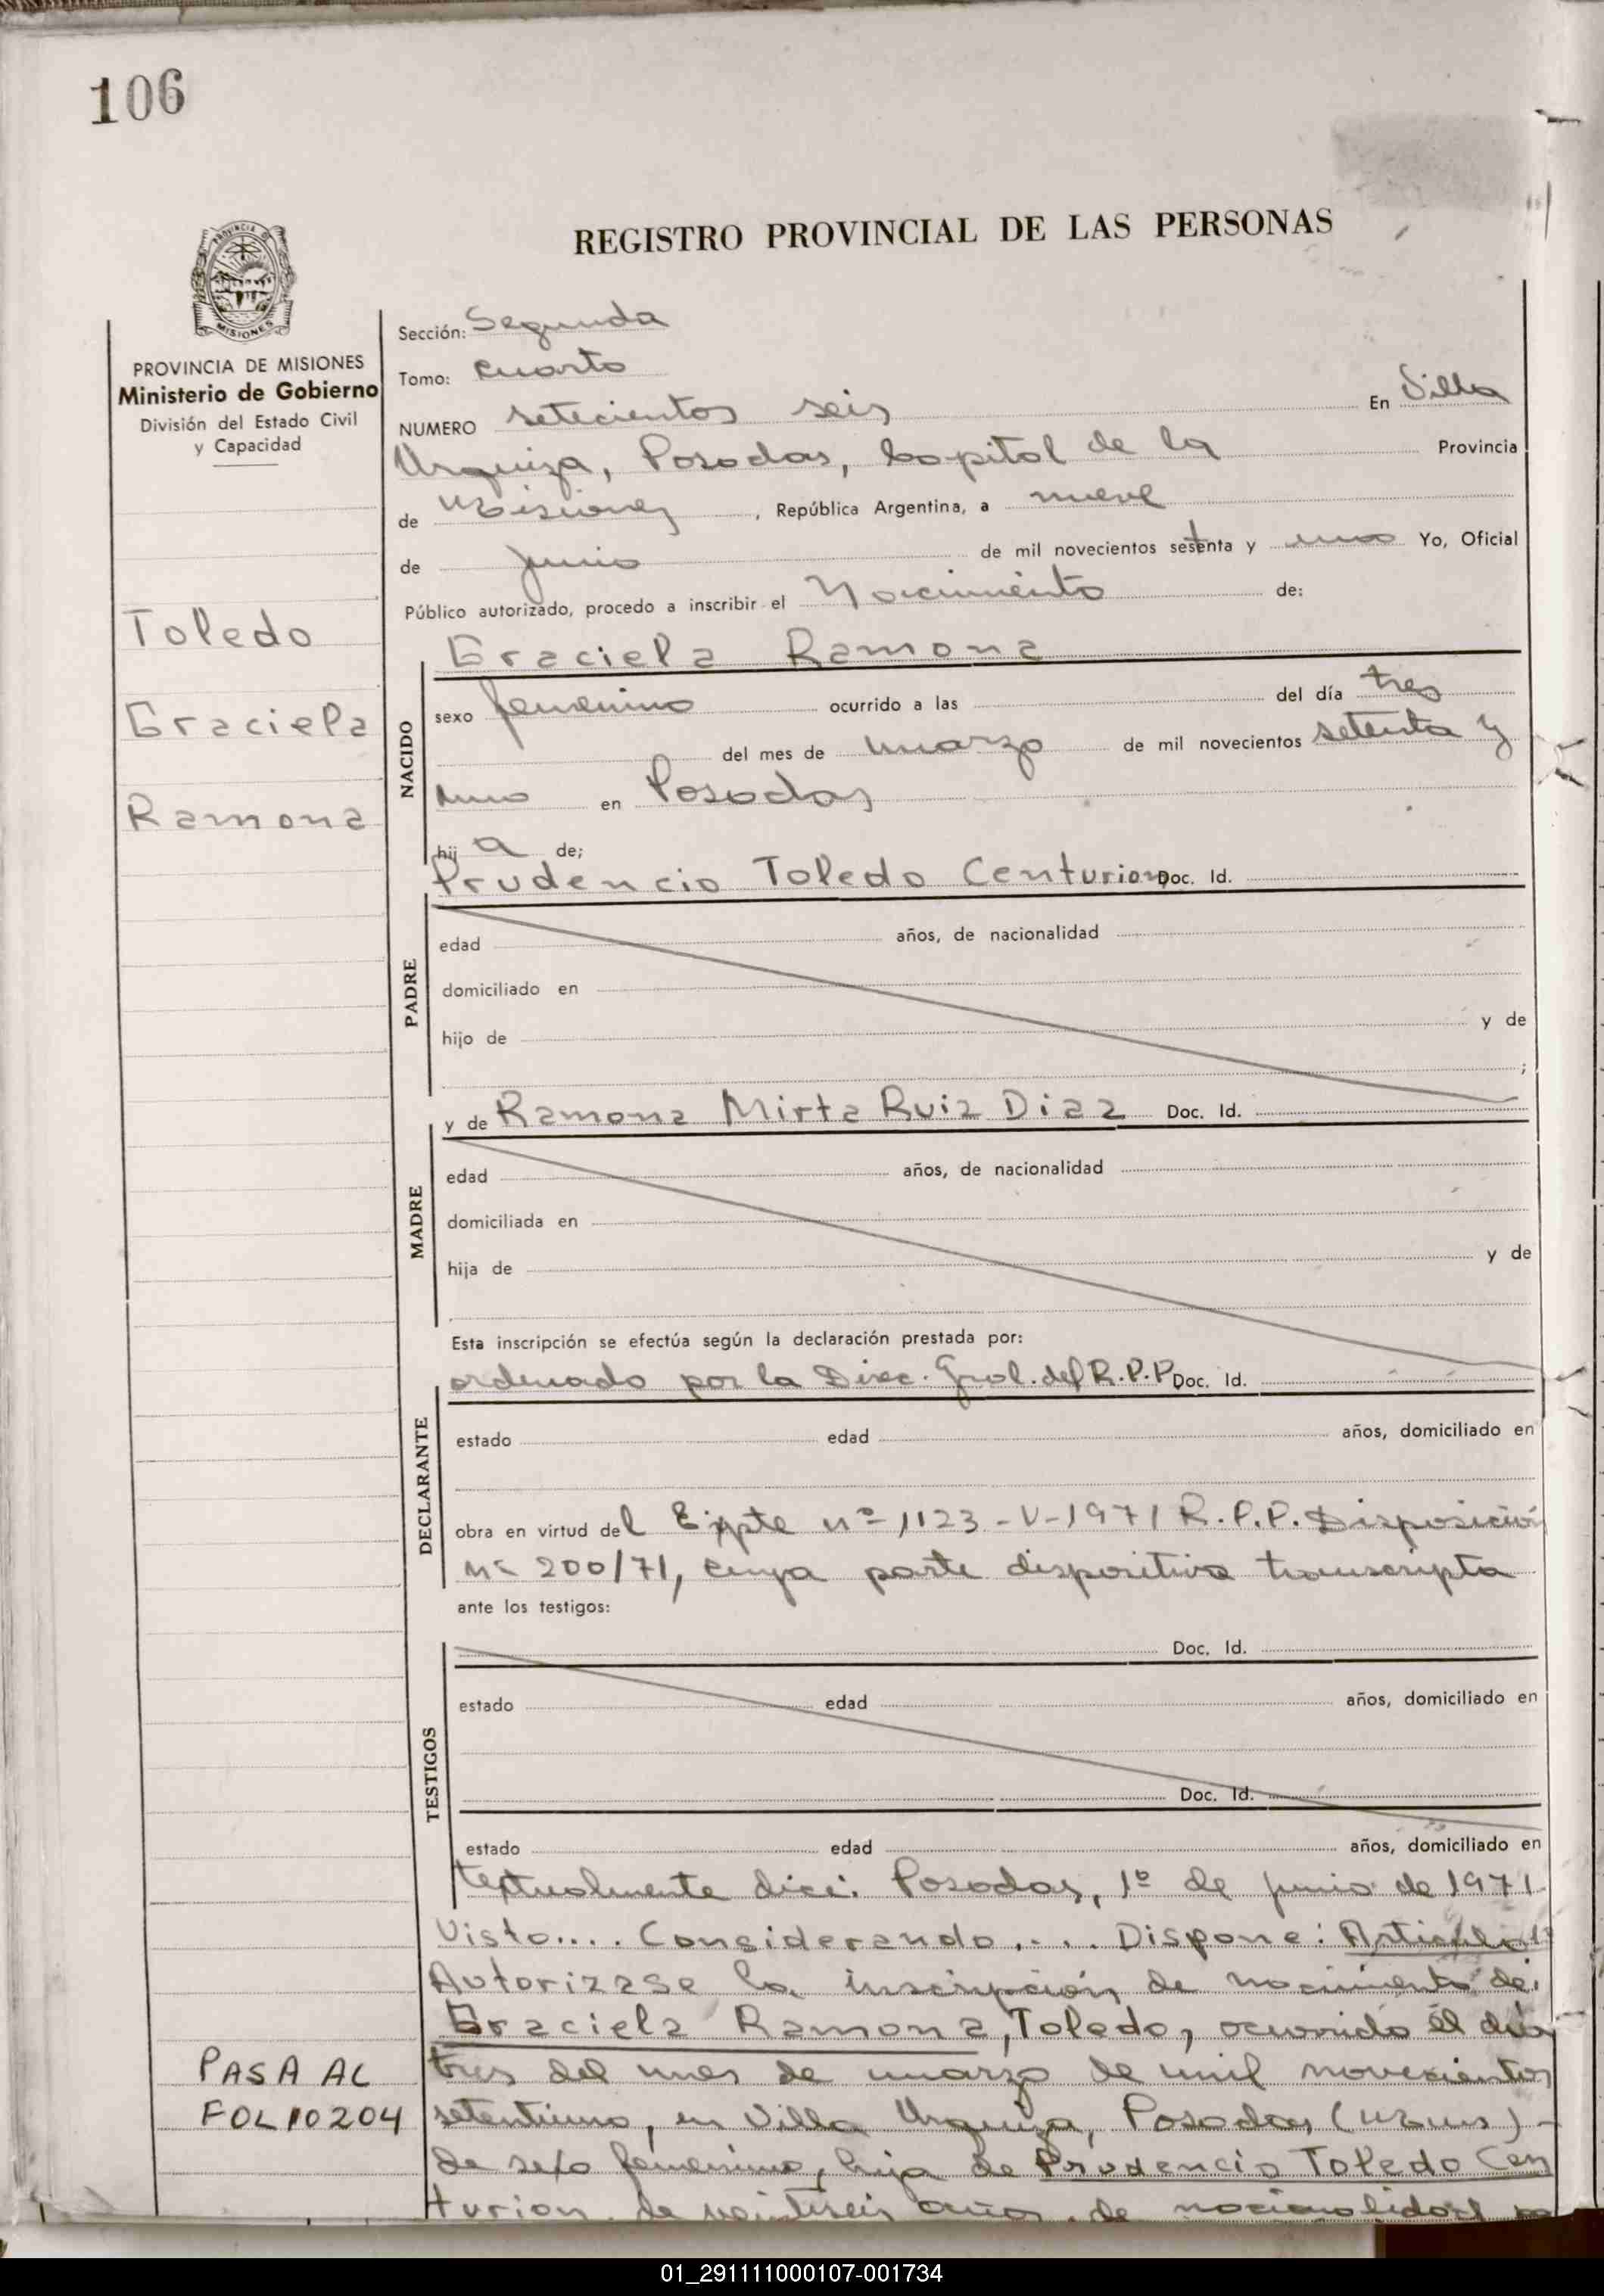 106
REGISTRO PROVINCIAL DE LAS PERSONAS
PROVINCIA DE
MISIONES
PROVINCIA DE MISIONES
Ministerio de Gobierno
División del Estado Civil
y Capacidad
Toledo
Graciela
Ramona
Sección: Segunda
Tomo: cuarto
NUMERO setecientos seis En Villa
Urquiza, Posadas, Capital de la Provincia
de Misiones, República Argentina, a nueve
de junio de mil novecientos setenta y uno Yo, Oficial
Público autorizado, procedo a inscribir el Nacimiento de:
Graciela Ramona
NACIDO
sexo femenino ocurrido a las del día tres
del mes de marzo de mil novecientos setenta y
uno en Posadas
hij a de;
Prudencio Toledo Centurion Doc. Id.
PADRE
edad años, de nacionalidad
domiciliado en
hijo de y de
;
y de Ramona Mirta Ruiz Diaz Doc. Id.
MADRE
edad años, de nacionalidad
domiciliada en
hija de y de
Esta inscripción se efectúa según la declaración prestada por:
ordenado por la Direc. Gral. del R.P.P. Doc. Id.
DECLARANTE
estado edad años, domiciliado en
obra en virtud del Expte nº 1123-V-1971 R.P.P. Disposición
nº 200/71, cuya parte dispositiva transcripta
ante los testigos:
Doc. Id.
TESTIGOS
estado edad años, domiciliado en
Doc. Id.
estado edad años, domiciliado en
textualmente dice: Posadas, 1º de junio de 1971
Visto.... Considerando.... Dispone: Articulo 1º
Autorizase la inscripción de nacimiento de:
Graciela Ramona, Toledo, ocurrido el día
tres del mes de marzo de mil novecientos
setentiuno, en Villa Urquiza, Posadas, (Mnes) -
de sexo femenino, hija de Prudencio Toledo Cen
turion, de veintiseis años, de nacionalidad
PASA AL
FOLIO 204
01_291111000107-001734